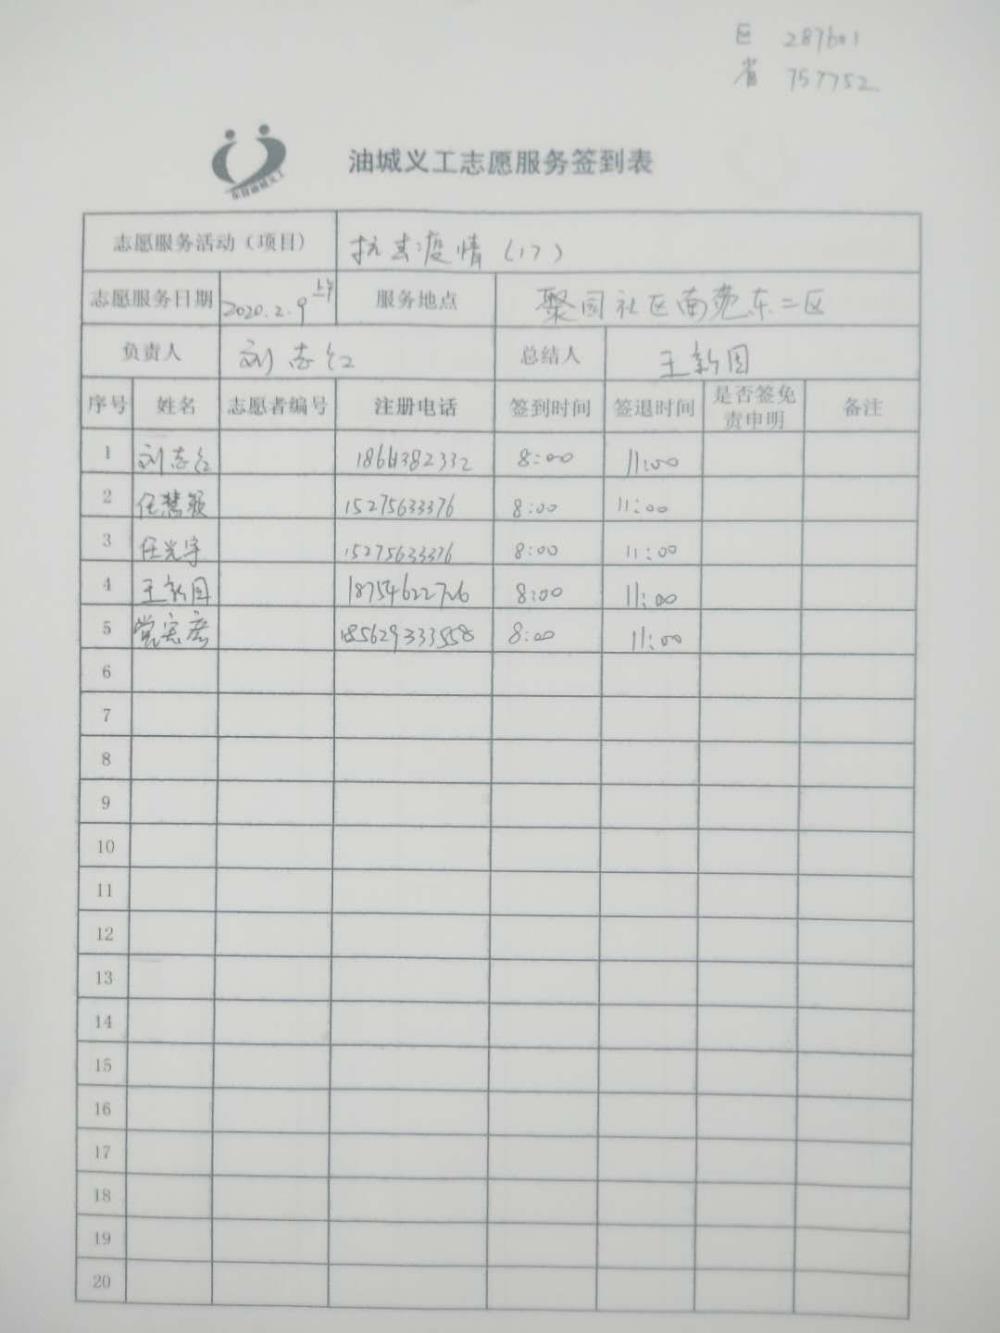 区 287601
省 757752
油城义工志愿服务签到表
志愿服务活动（项目） 抗击疫情（17）
志愿服务日期 2020.2.9 上午 服务地点 聚园社区南苑东二区
负责人 刘志红 总结人 王新国
序号 姓名 志愿者编号 注册电话 签到时间 签退时间 是否签免责申明 备注
1 刘志红 8:00 11:00
2 任慧颖 15275633376 8:00 11:00
3 任光宇 15275633376 8:00 11:00
4 王新国 18754622726 8:00 11:00
5 8:00 11:00
6
7
8
9
10
11
12
13
14
15
16
17
18
19
20